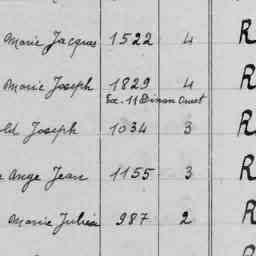 Marie Jacques 1522 4 R
Marie Joseph 1829 4 R
Sec. 11 Dinan Ouest
old Joseph 1034 3 R
Ange Jean 1155 3 R
Marie Julien 987 2 R